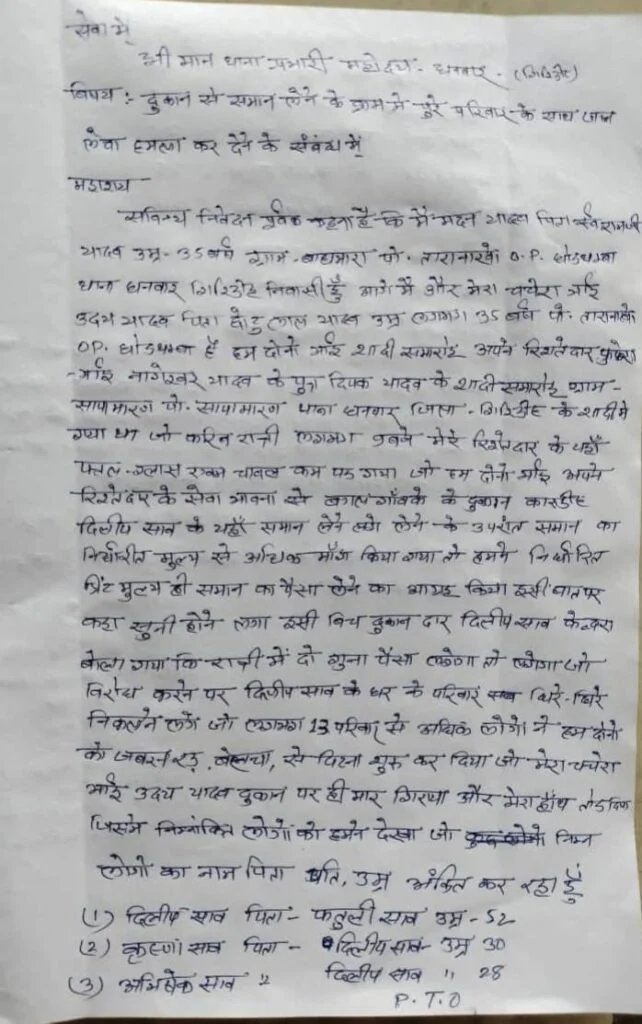 सेवा में
श्री मान थाना प्रभारी महोदय - धनवार - (गिरिडीह)
विषय :- दुकान से समान लेने के क्रम मे पुरे परिवार के साथ जान
लेवा हमला कर देने के संबंध में
महाशय
सविनय निवेदन पूर्वक कहना है कि मै मदन यादव पिता स्व॰ रामजी
यादव उम्र - 35 वर्ष ग्राम - पो. तारानाखो O.P. घोडथम्बा
थाना धनवार गिरिडीह निवासी हूँ आगे मै और मेरा चचेरा भाई
उदय यादव पिता छोटु लाल यादव उम्र लगभग 35 वर्ष पो. तारानाखो
OP. घोडथम्बा है हम दोनो भाई शादी समारोह अपने रिश्तेदार फुफेरा
भाई नागेश्वर यादव के पुत्र दिपक यादव के शादी समारोह ग्राम -
सापामारण पो. सापामारण थाना धनवार जिला - गिरिडीह के शादी मे
गया था जो करिब रात्री लगभग बजे मेरे रिश्तेदार के यहाँ
पतल - ग्लास चावल कम पड गया जो हम दोनो भाई अपने
रिश्तेदार के सेवा भावना से गाँव के के दुकान
दिलीप साव के यहाँ समान लेने लगे लेने के उपरांत समान का
निर्धारीत मुल्य से अधिक माँग किया गया तो हमने निर्धारित
प्रिंट मुल्य ही समान का पैसा लेने का आग्रह किया इसी बात पर
कहा सुनी होने लगा इसी बिच दुकान दार दिलीप साव के द्वारा
बोला गया कि रात्री में दो गुना पैसा लगेगा तो लगेगा जो
विरोध करने पर दिलीप साव के घर के परिवार धिरे - धिरे
निकलने लगे जो लगभग 13 परिवार से अधिक लोगो ने हम दोनो
को रड, बेलचा, से पिटना शुरू कर दिया जो मेरा चचेरा
भाई उदय यादव दुकान पर ही मार गिराया और मेरा हाँथ तोड दिया
जिसमे निम्नांकित लोगो को हमने देखा जो निम्न
लोगो का नाम पिता पति, उम्र अंकित कर रहा हूँ
(1) दिलीप साव पिता - फतुली साव उम्र - 52
(2) कृष्णा साव पिता - दिलीप साव - उम्र 30
(3) अभिषेक साव " दिलीप साव " 28
P. T. O